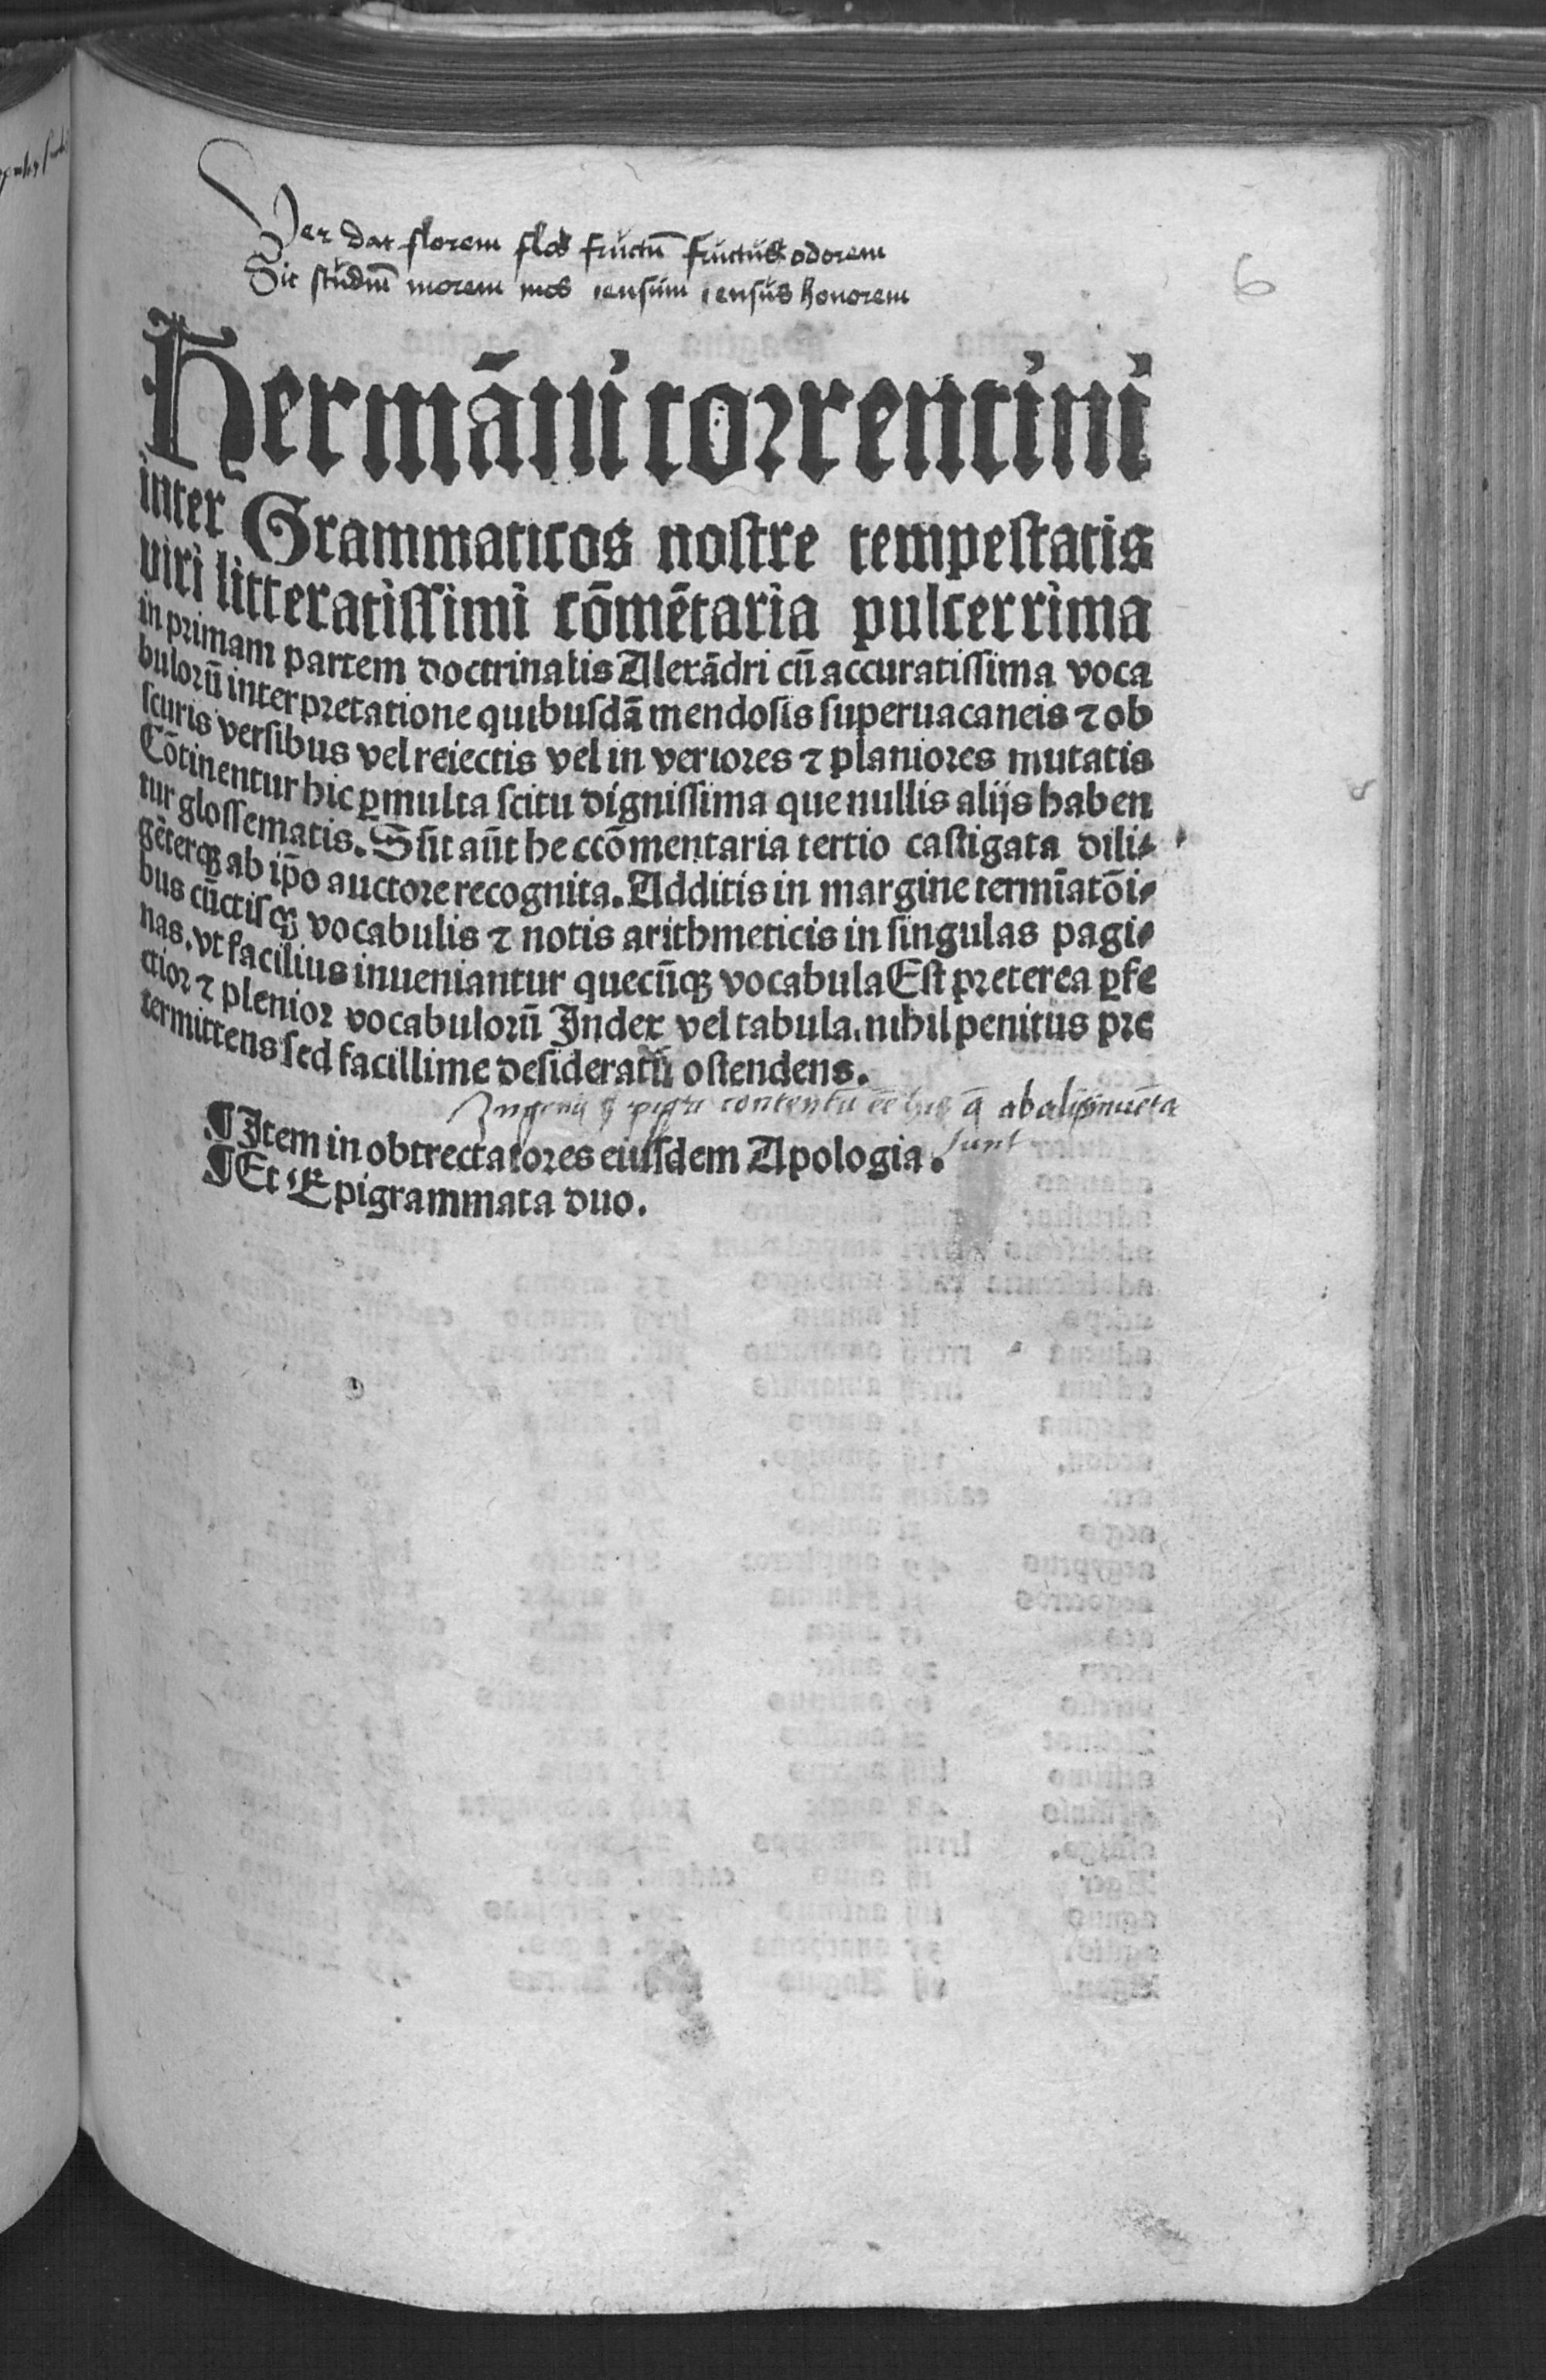 Ver dat florem flos fructū fructus odorem
Sic studiū morem mos sensum sensus honorem
6
Hermāni torrentini
inter Grammaticos nostre tempestatis
viri litteratissimi cōmētaria pulcerrima
in primam partem doctrinalis Alexādri cū accuratissima voca
bulorū interpretatione quibusdā mendosis superuacaneis ⁊ ob
scuris versibus vel reiectis vel in veriores ⁊ planiores mutatis
Cōtinentur hic ꝑmulta scitu dignissima que nullis alijs haben
tur glossematis. Sūt aūt hec cōmentaria tertio castigata dili⸗
gēterqꝫ ab ip̄o auctore recognita. Additis in margine termīatōi⸗
bus cūctisqꝫ vocabulis ⁊ notis arithmeticis in singulas pagi⸗
nas. vt facilius inueniantur quecūqꝫ vocabula Est preterea ꝑfe
ctior ⁊ plenior vocabulorū Index vel tabula. nihil penitus pre
termittens sed facillime desideratū ostendens.
Ingenij pigri contentū eē his q̄ ab alijs inuēta
sunt
¶ Item in obtrectatores eiusdem Apologia.
¶ Et Epigrammata duo.